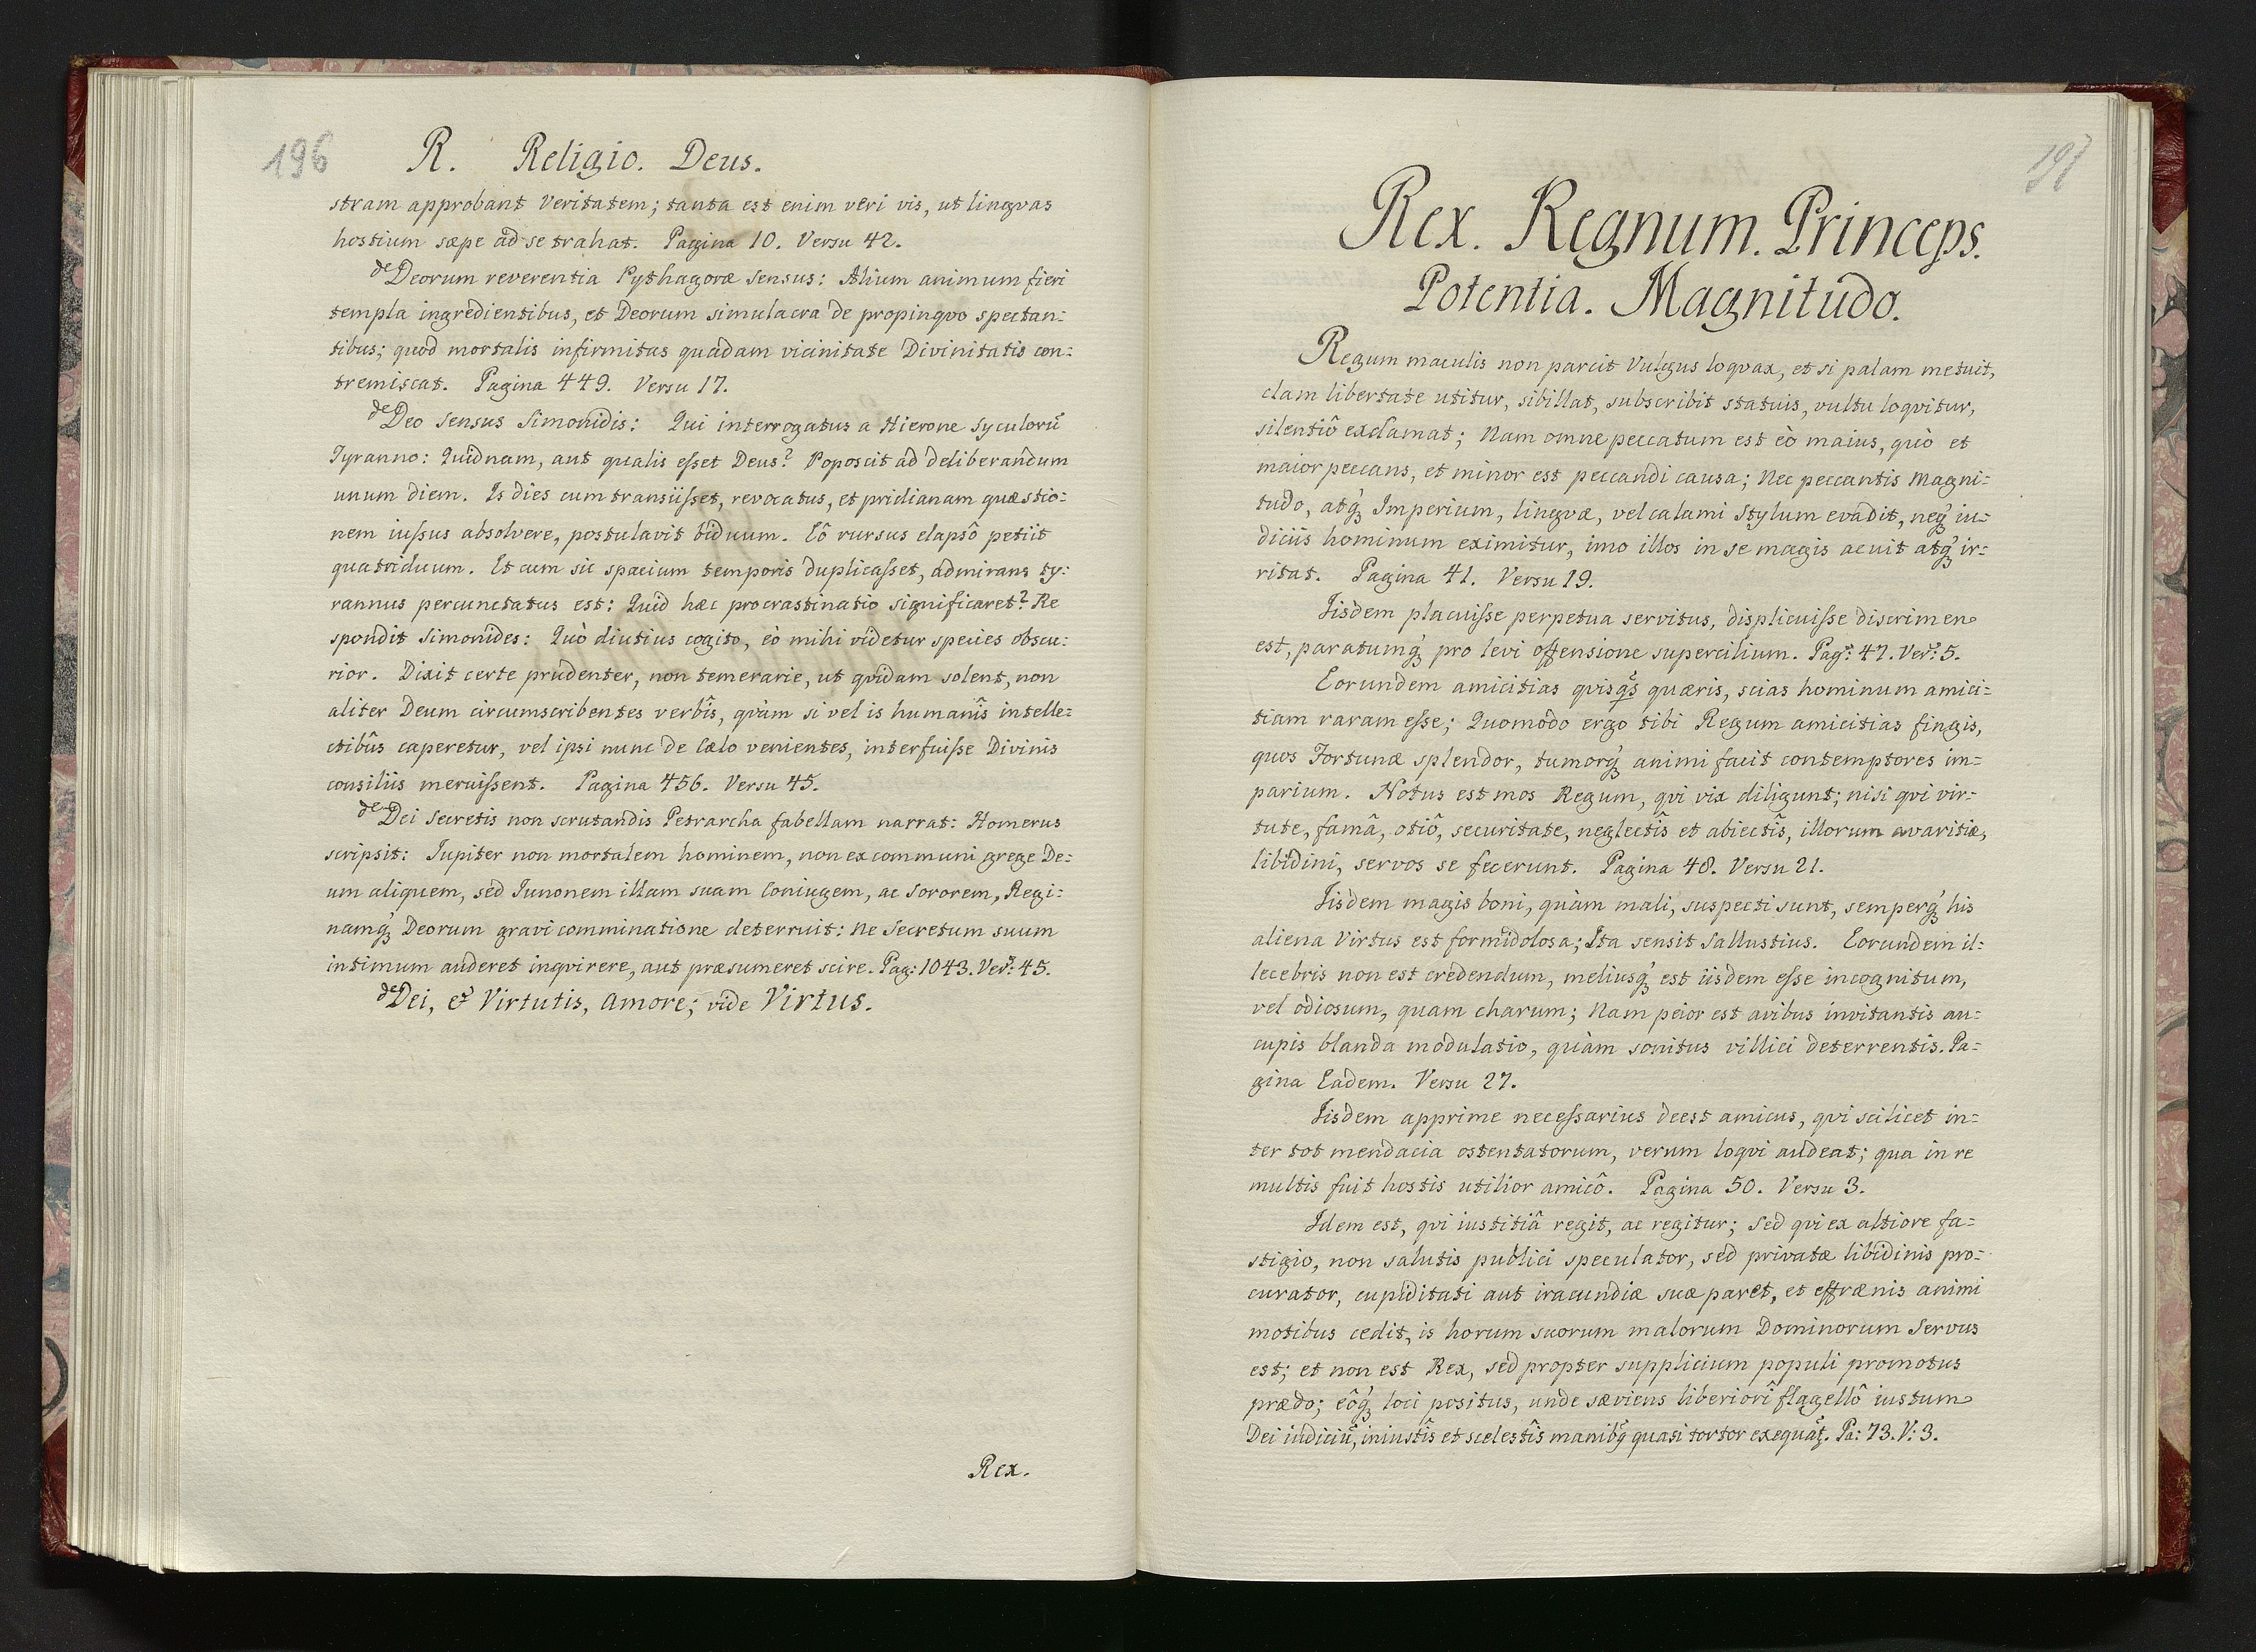 196
R. Religio. Deus.
stram approbant Veritatem; tanta est enim veri vis, ut lingvas
hostium sæpe ad se trahat. Pagina 10. Versu 42.
de Deorum reverentia Pythagoræ sensus: Alium animum fieri
templa ingredientibus, et Deorum simulacra de propinqvo spectan=
tibus; quod mortalis infirmitas quadam vicinitate Divinitatis con=
tremiscat. Pagina 449. Versu 17.
de Deo sensus Simonidis: Qui interrogatus a Hierone Syculorũ
Tyranno: Quidnam, aut qualis eſset Deus? Poposcit ad deliberandum
unum diem. Is dies cum transiiſset, revocatus, et pridianam quæstio=
nem iuſsus absolvere, postulavit biduum. Eô rursus elapsô petiit
quatriduum. Et cum sic spacium temporis duplicaſset, admirans ty=
rannus percunctatus est: Quid hæc procrastinatio significaret? Re
spondit Simonides: Quò diutius cogito, eò mihi videtur species obscu=
rior. Dixit certe prudenter, non temerarie, ut qvidam solent, non
aliter Deum circumscribentes verbîs, qvàm si vel is humanîs intelle=
ctibûs caperetur, vel ipsi nunc de Cælo venientes, interfuiſse Divinis
consiliis meruiſsent. Pagina 456. Versu 45.
de Dei Secretis non scrutandis Petrarcha fabellam narrat: Homerus
scripsit: Iupiter non mortalem hominem, non ex communi grege De=
um aliquem, sed Iunonem illam suam Coniugem, ac Sororem, Regi=
namq́ꝫ Deorum gravi comminatione deterruit: ne Secretum suum
intimum auderet inqvirere, aut præsumeret scire. Pag: 1043. Verˢ: 45.
de Dei, & Virtutis, Amore; vide Virtus.
Rex.
197
Rex. Regnum. Princeps.
Potentia. Magnitudo.
Regum maculis non parcit Vulgus loqvax, et si palam metuit,
clam libertate utitur, sibillat, subscribit statuis, vultu loqvitur,
silentiô exclamat; Nam omne peccatum est eò maius, quò et
maior peccans, et minor est peccandi causa; Nec peccantis Magni=
tudo, atq́ꝫ Imperium, lingvæ, vel calami Stylum evadit, neq́ꝫ iu=
diciis hominum eximitur, imo illos in se magis acuit atq́ꝫ ir=
ritat. Pagina 41. Versu 19.
Iisdem placuiſse perpetua servitus, displicuiſse discrimen
est, paratumq́ꝫ pro levi offensione supercilium. Pagᵃ: 47. Verˢ: 5.
Eorundem amicitias qvisqs quæris, scias hominum amici=
tiam raram eſse; Quomodo ergo tibi Regum amicitias fingis,
quos Fortunæ splendor, tumorq́ꝫ animi facit contemptores im=
parium. Notus est mos Regum, qvi vix diligunt; nisi qvi vir=
tute, famâ, otiô, securitate, neglectîs et abiectîs, illorum avaritiæ,
libidini, servos se fecerunt. Pagina 48. Versu 21.
Iisdem magis boni, quàm mali, suspecti sunt, semperq́ꝫ his
aliena Virtus est formidolosa; Ita sensit Sallustius. Eorundem il=
lecebris non est credendum, meliusq́ꝫ est iisdem eſse incognitum,
vel odiosum, quam charum; Nam peior est avibus invitantis au=
cupis blanda modulatio, quàm sonitus villici deterrentis. Pa=
gina Eadem. Versu 27.
Iisdem apprime neceſsarius deest amicus, qvi scilicet in=
ter tot mendacia ostentatorum, verum loqvi audeat; qua in re
multis fuit hostis utilior amicô. Pagina 50. Versu 3.
Idem est, qvi iustitiâ regit, ac regitur; sed qvi ex altiore fa=
stigio, non salutis publici speculator, sed privatæ libidinis pro=
curator, cupiditati aut iracundiæ suæ paret, et effrænis animi
motibus cedit, is horum suorum malorum Dominorum Servus
est; et non est Rex, sed propter supplicium populi promotus
prædo; eôq́ꝫ loci positus, unde sæviens liberiorî flagellô iustum
Dei iudiciũ, iniustîs et scelestîs manibꝫ quasi tortor exequat̃. Pa: 73. V: 3.